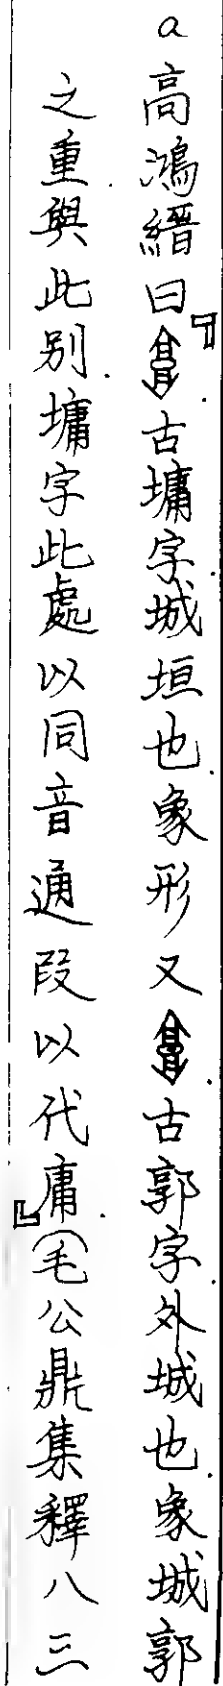 a高鴻縉曰『古墉字.城垣也.象形.又.古郭字.外城也.象城郭
之重.與此別.墉字此處以同音通叚以代庸.』(毛公鼎集釋八三